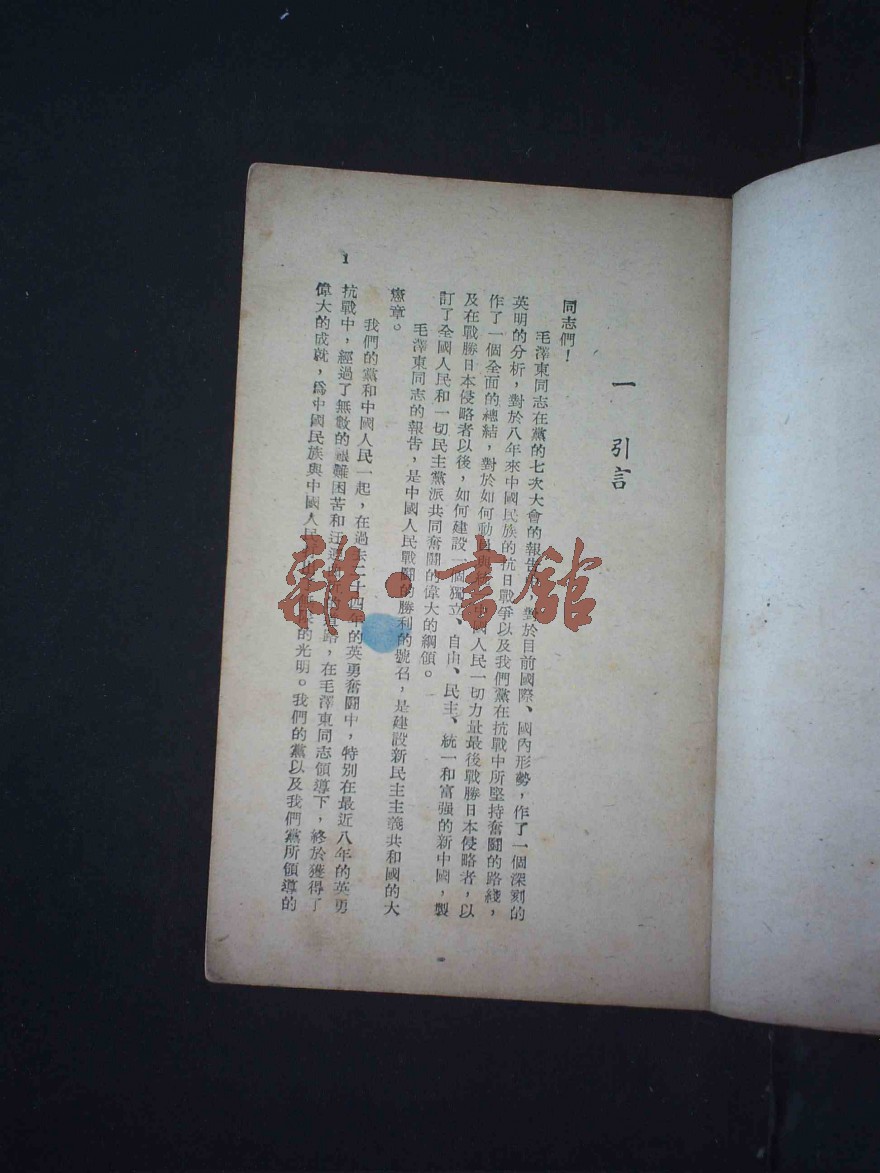 一 引言
同志們！
毛澤東同志在黨的七次大會的報告 對於目前國際、國內形勢，作了一個深刻的
英明的分析，對於八年來中國民族的抗日戰爭以及我們黨在抗戰中所堅持奮鬪的路綫，
作了一個全面的總結，對於如何動 中國人民一切力量最後戰勝日本侵略者，以
及在戰勝日本侵略者以後，如何建設一個獨立、自由、民主、統一和富强的新中國，製
訂了全國人民和一切民主黨派共同奮鬪的偉大的綱領。
毛澤東同志的報告，是中國人民戰鬪的勝利的號召，是建設新民主主義共和國的大
憲章。
我們的黨和中國人民一起，在過去二十四年的英勇奮鬪中，特別在最近八年的英勇
抗戰中，經過了無數的艱難困苦和 道路，在毛澤東同志領導下，終於獲得了
偉大的成就，爲中國民族與中國人民 的光明。我們的黨以及我們黨所領導的
1
雜·書館